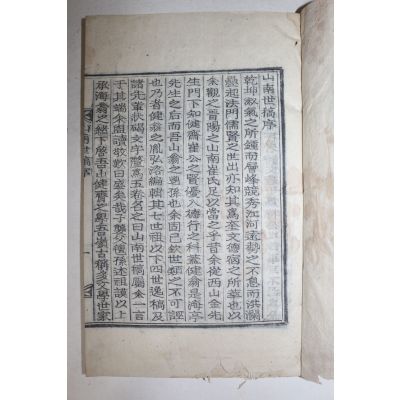 山南世稿序
乾坤淑氣之所鍾而層峰競秀江河遠勢之不息而洪瀾
疊起法門儒賢之世出亦知其爲奎文德宿之所華也以
余觀之晋陽之山南崔氏足以當之乎昔余從西山金先
生門下知健齋崔公之賢優入德行之科盖健翁是海亭
先生之后而吾山翁之孫也余固已欽世類之不可誣
也乃者健翁之胤弘洛編輯其七世祖以下四世逸稿及
諸先輩狀碣文字釐爲五卷名之曰山南世稿屬余一言
于其端余讀敬歎曰盛矣哉子父種孫述祖謨以上
承海翁之緖下啓吾山健齋之學吾嶺古稱多文學世家
山南世稿序 一